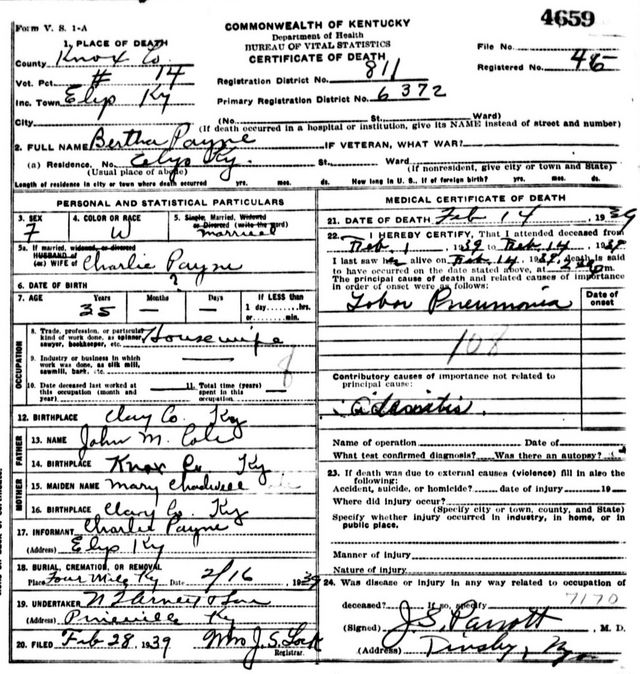 Form V. S. 1-A
COMMONWEALTH OF KENTUCKY
Department of Health
BUREAU OF VITAL STATISTICS
CERTIFICATE OF DEATH
4659
File No.
Registered No. 45
1. PLACE OF DEATH
County Knox Co.
Vot. Pct. # 14
Inc. Town Elys Ky
City
Registration District No. 811
Primary Registration District No. 6372
(No. St. Ward)
(If death occurred in a hospital or institution, give its NAME instead of street and number)
2. FULL NAME Bertha Payne IF VETERAN, WHAT WAR?
(a) Residence. No. Elys Ky. St. Ward
(Usual place of abode) (If nonresident, give city or town and State)
Length of residence in city or town where death occurred yrs. mos. ds. How long in U. S., if of foreign birth? yrs. mos. ds.
PERSONAL AND STATISTICAL PARTICULARS
3. SEX F
4. COLOR OR RACE W
5. Single, Married, Widowed or Divorced (write the word) married
5a. If married, widowed, or divorced
HUSBAND of
(or) WIFE of Charlie Payne
6. DATE OF BIRTH ?
7. AGE Years 35 Months — Days — If LESS than 1 day ......hrs. or ......min.
OCCUPATION
8. Trade, profession, or particular kind of work done, as spinner, sawyer, bookkeeper, etc. Housewife
9. Industry or business in which work was done, as silk mill, sawmill, bank, etc.
10. Date deceased last worked at this occupation (month and year)
11. Total time (years) spent in this occupation
12. BIRTHPLACE Clay Co. Ky
FATHER
13. NAME John M. Cole
14. BIRTHPLACE Knox Co Ky
MOTHER
15. MAIDEN NAME Mary Chadwell
16. BIRTHPLACE Clay Co. Ky
17. INFORMANT Charlie Payne
(Address) Elys Ky
18. BURIAL, CREMATION, OR REMOVAL
Place Four Mile, Ky Date 2/16 1939
19. UNDERTAKER
(Address) Pineville Ky
20. FILED Feb 28, 1939 Mrs J. S. Lock
Registrar.
MEDICAL CERTIFICATE OF DEATH
21. DATE OF DEATH Feb 14, 1939
22. I HEREBY CERTIFY, That I attended deceased from
Feb 1, 1939 to Feb 14, 1939
I last saw her alive on Feb. 14, 1939, death is said
to have occurred on the date stated above, at m.
The principal cause of death and related causes of importance
in order of onset were as follows:
Date of onset
Lobar Pneumonia
108
Contributory causes of importance not related to
principal cause:
Name of operation Date of
What test confirmed diagnosis? Was there an autopsy?
23. If death was due to external causes (violence) fill in also the
following:
Accident, suicide, or homicide? date of injury 19
Where did injury occur?
(Specify city or town, county, and State)
Specify whether injury occurred in industry, in home, or in
public place.
Manner of injury
Nature of injury
24. Was disease or injury in any way related to occupation of
deceased? If so, specify
7170
(Signed) J. S. Parrott, M. D.
(Address)